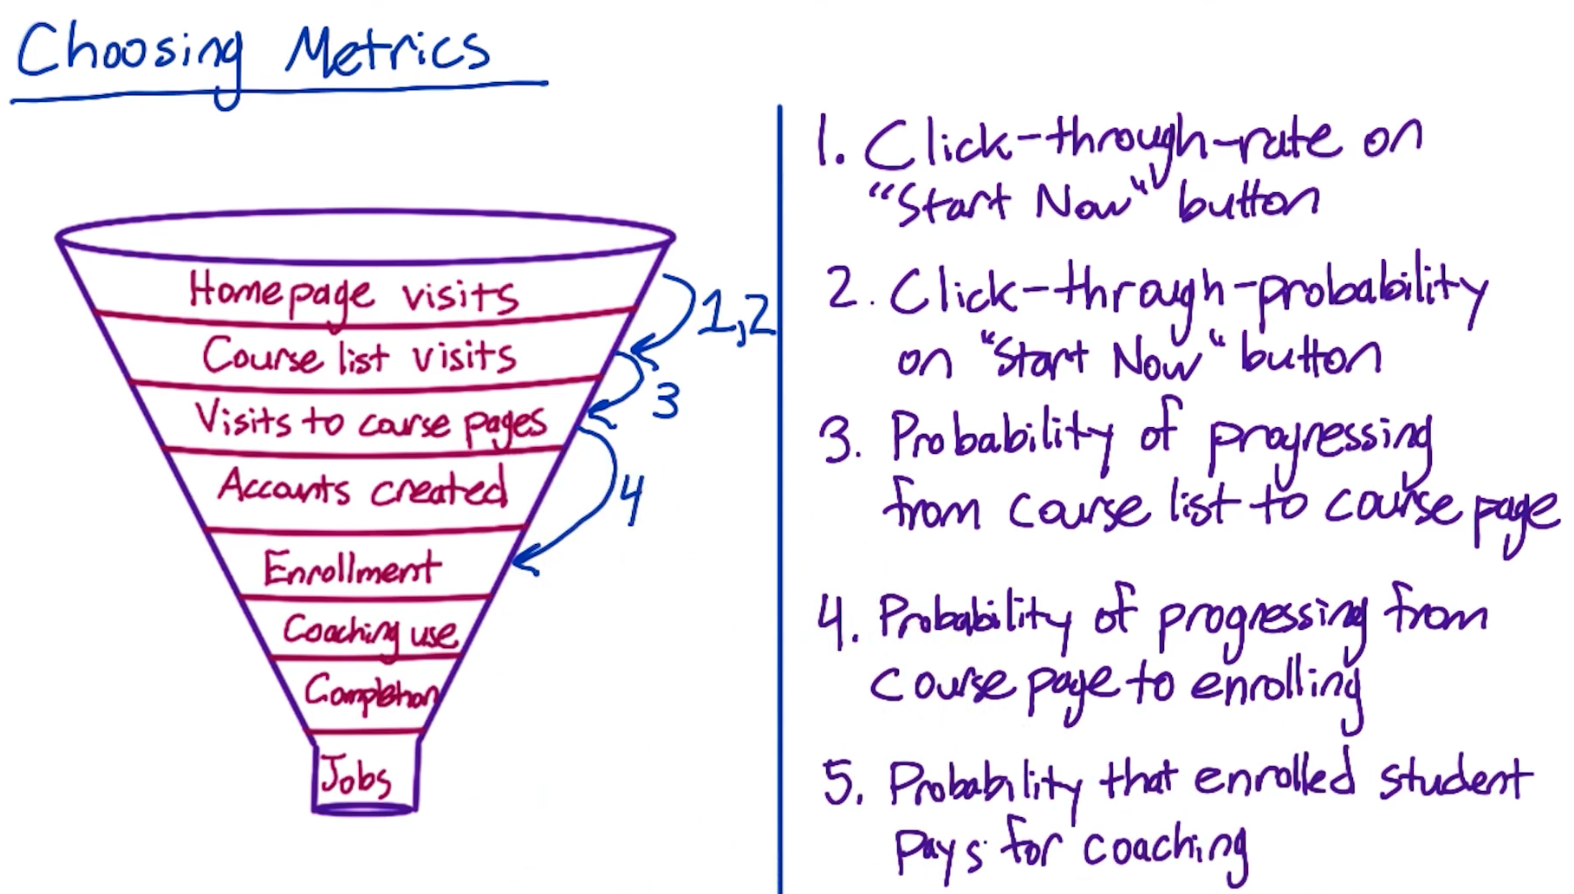 Choosing Metrics
Homepage visits
Course list visits
Visits to course pages
Accounts created
Enrollment
Coaching use
Completion
Jobs
1,2
3
4
1. Click-through-rate on
"Start Now" button
2. Click-through-probability
on "Start Now" button
3. Probability of progressing
from course list to course page
4. Probability of progressing from
course page to enrolling
5. Probability that enrolled student
pays for coaching